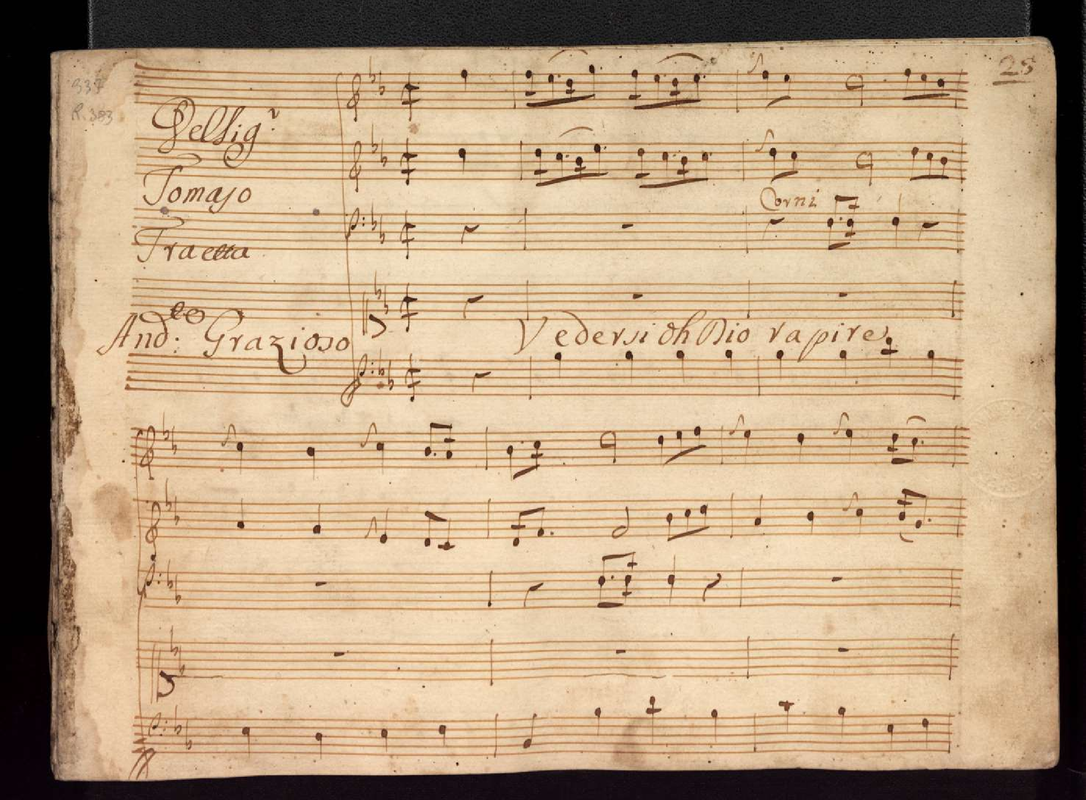 337
R. 353
25
Del Sig.r
Tomaso
Traetta
Corni
And:te Grazioso
Vedersi Oh Dio rapire